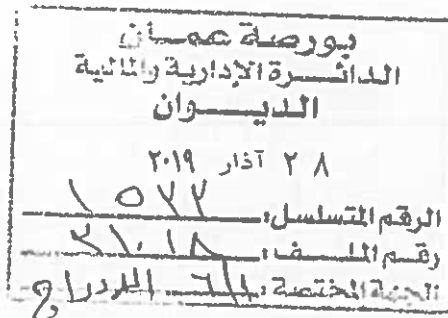 بورصة عمان
الدائرة الإدارية والمالية
الديوان
٢٨ آذار ٢٠١٩
الرقم المتسلسل: ١٥٢٢
رقم الملف: ٣١٠١٨
الجهة المختصة: الادراج